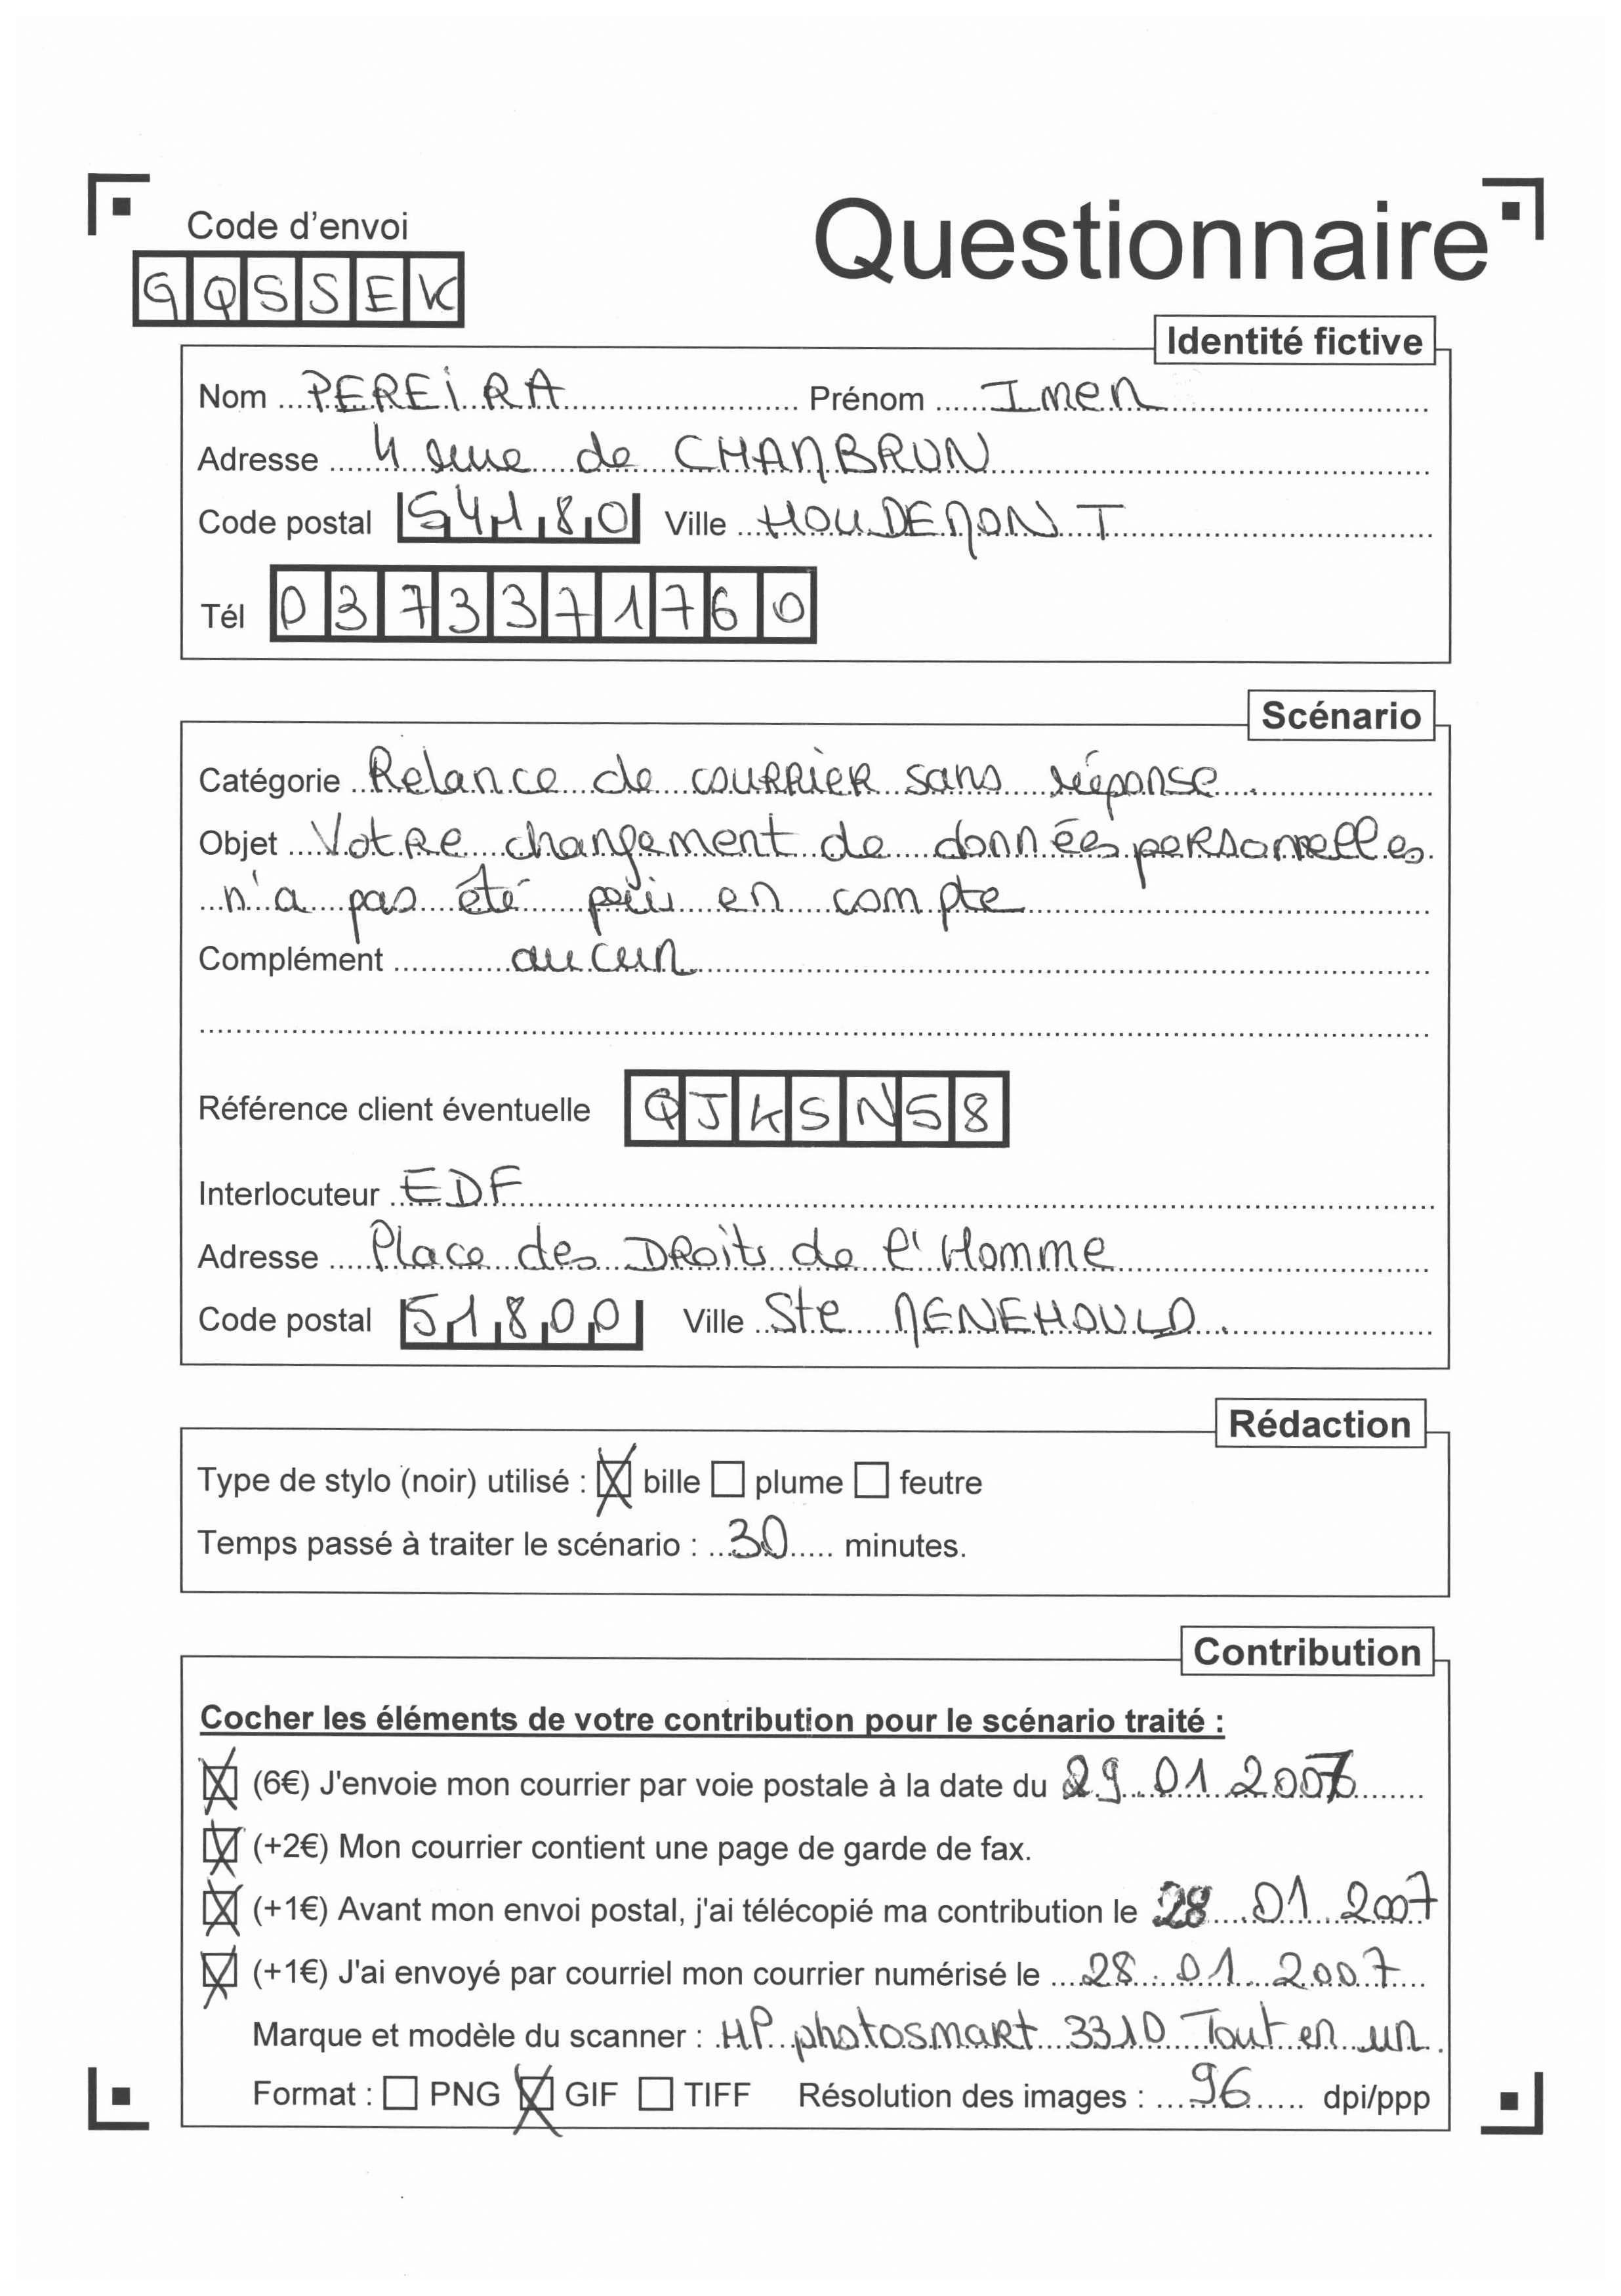 Code d'envoi
Questionnaire
GQSSEK
Identité fictive
Nom PEREIRA Prénom Imen
Adresse 4 rue de CHAMBRUN
Code postal 54180 Ville HOUDEMONT
Tél 0373371760
Scénario
Catégorie Relance de courrier sans réponse.
Objet Votre changement de données personnelles
n'a pas été pris en compte
Complément aucun
Référence client éventuelle QJKSN58
Interlocuteur EDF
Adresse Place des Droits de l'Homme
Code postal 51800 Ville Ste MENEHOULD.
Rédaction
Type de stylo (noir) utilisé : bille plume feutre
Temps passé à traiter le scénario : 30 minutes.
Contribution
Cocher les éléments de votre contribution pour le scénario traité :
(6€) J'envoie mon courrier par voie postale à la date du 29.01.2007
(+2€) Mon courrier contient une page de garde de fax.
(+1€) Avant mon envoi postal, j'ai télécopié ma contribution le 28.01.2007
(+1€) J'ai envoyé par courriel mon courrier numérisé le 28.01.2007
Marque et modèle du scanner : HP photosmart 3310 Tout en un.
Format : PNG GIF TIFF Résolution des images : 96 dpi/ppp